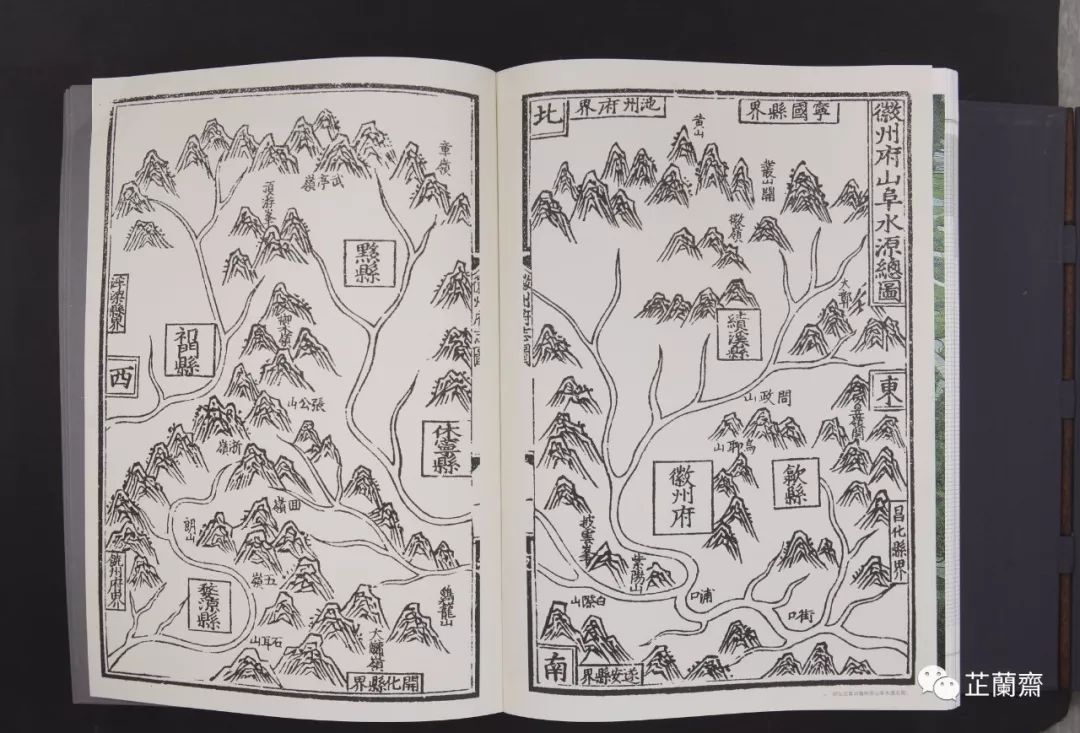 徽州府山阜水源總圖
寧國縣界
池州府界
北
黃山
叢山關
徽嶺
大鄣
績溪縣
東
問政山
烏聊山
昱嶺關
歙縣
徽州府
昌化縣界
披雲峯
紫陽山
浦口
街口
白際山
南
遂安縣界
章嶺
武亭嶺
頂游峯
黟縣
浮梁縣界
祁門縣
西
張公山
休寧縣
浙嶺
回嶺
朗山
五嶺
饒州府界
婺源縣
石耳山
大鏞嶺
鷄龍山
開化縣界
芷蘭齋